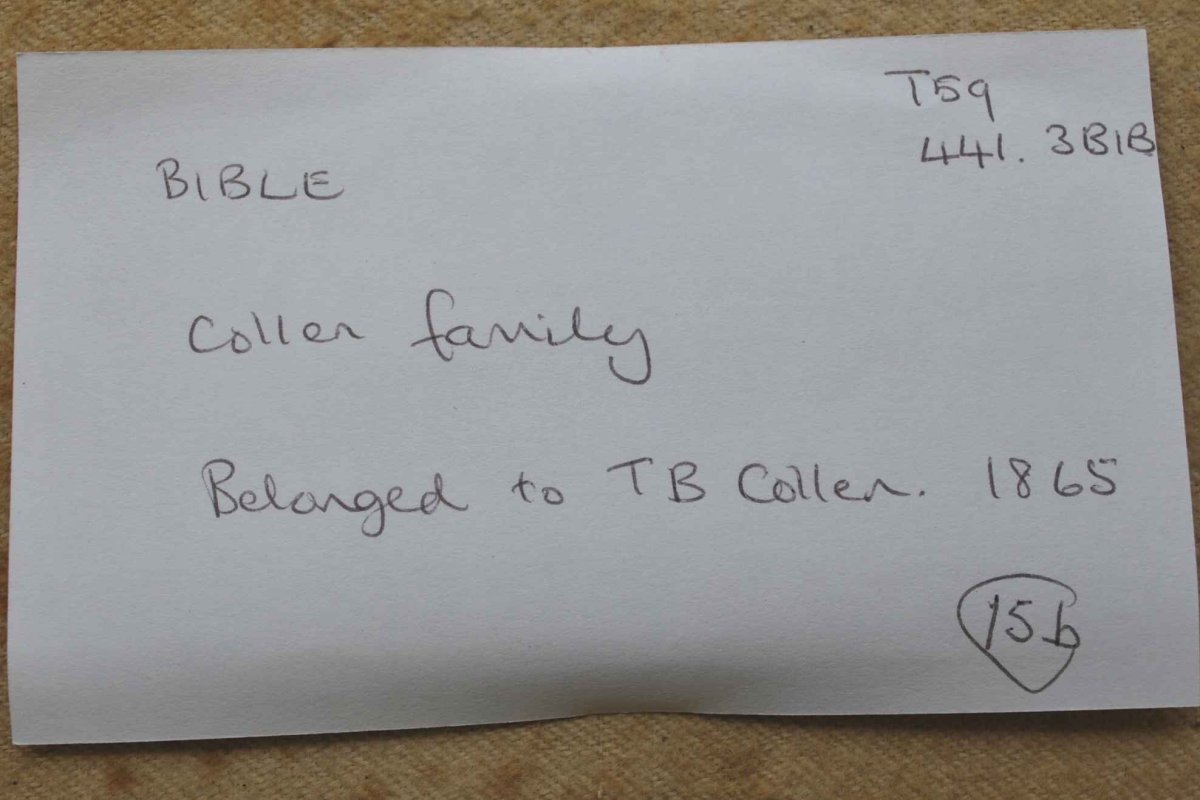 T59
441. 3BIB
BIBLE
Coller family
Belonged to TB Coller. 1865
15b